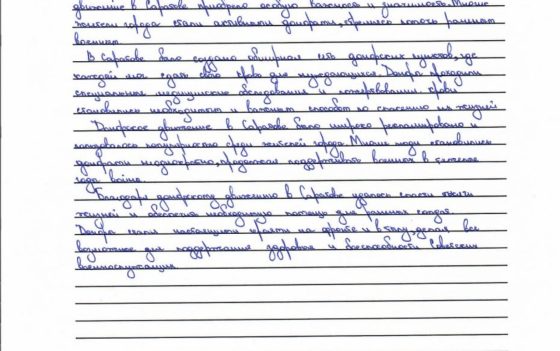 движение в Саратове приобрело особую важность и значимость. Многие
жители города стали активными донорами, стремясь помочь раненым
воинам.
В Саратове было создано обширная сеть донорских пунктов, где
каждый мог сдать свою кровь для нуждающихся. Доноры проходили
специальное медицинское обследование и
становились необходимым и важным способом по спасению жизней
Донорское движение в Саратове было широко рекламировано и
пользовалось популярностью среди жителей города. Многие люди становились
донорами неоднократно, продолжая поддерживать военных в течение
года войны.
Благодаря донорскому движению в Саратове удалось спасти тысячи
жизней и обеспечить необходимую помощь для раненых солдат.
Доноры стали настоящими на фронте и в тылу, делая все
возможное для поддержания здоровья и боеспособности советских
военнослужащих.